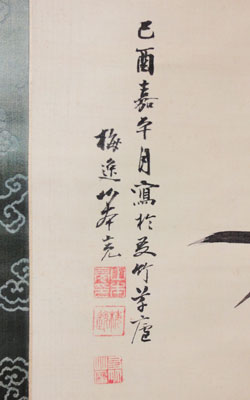 己酉嘉平月寫於友竹草廬
梅逸山本亮